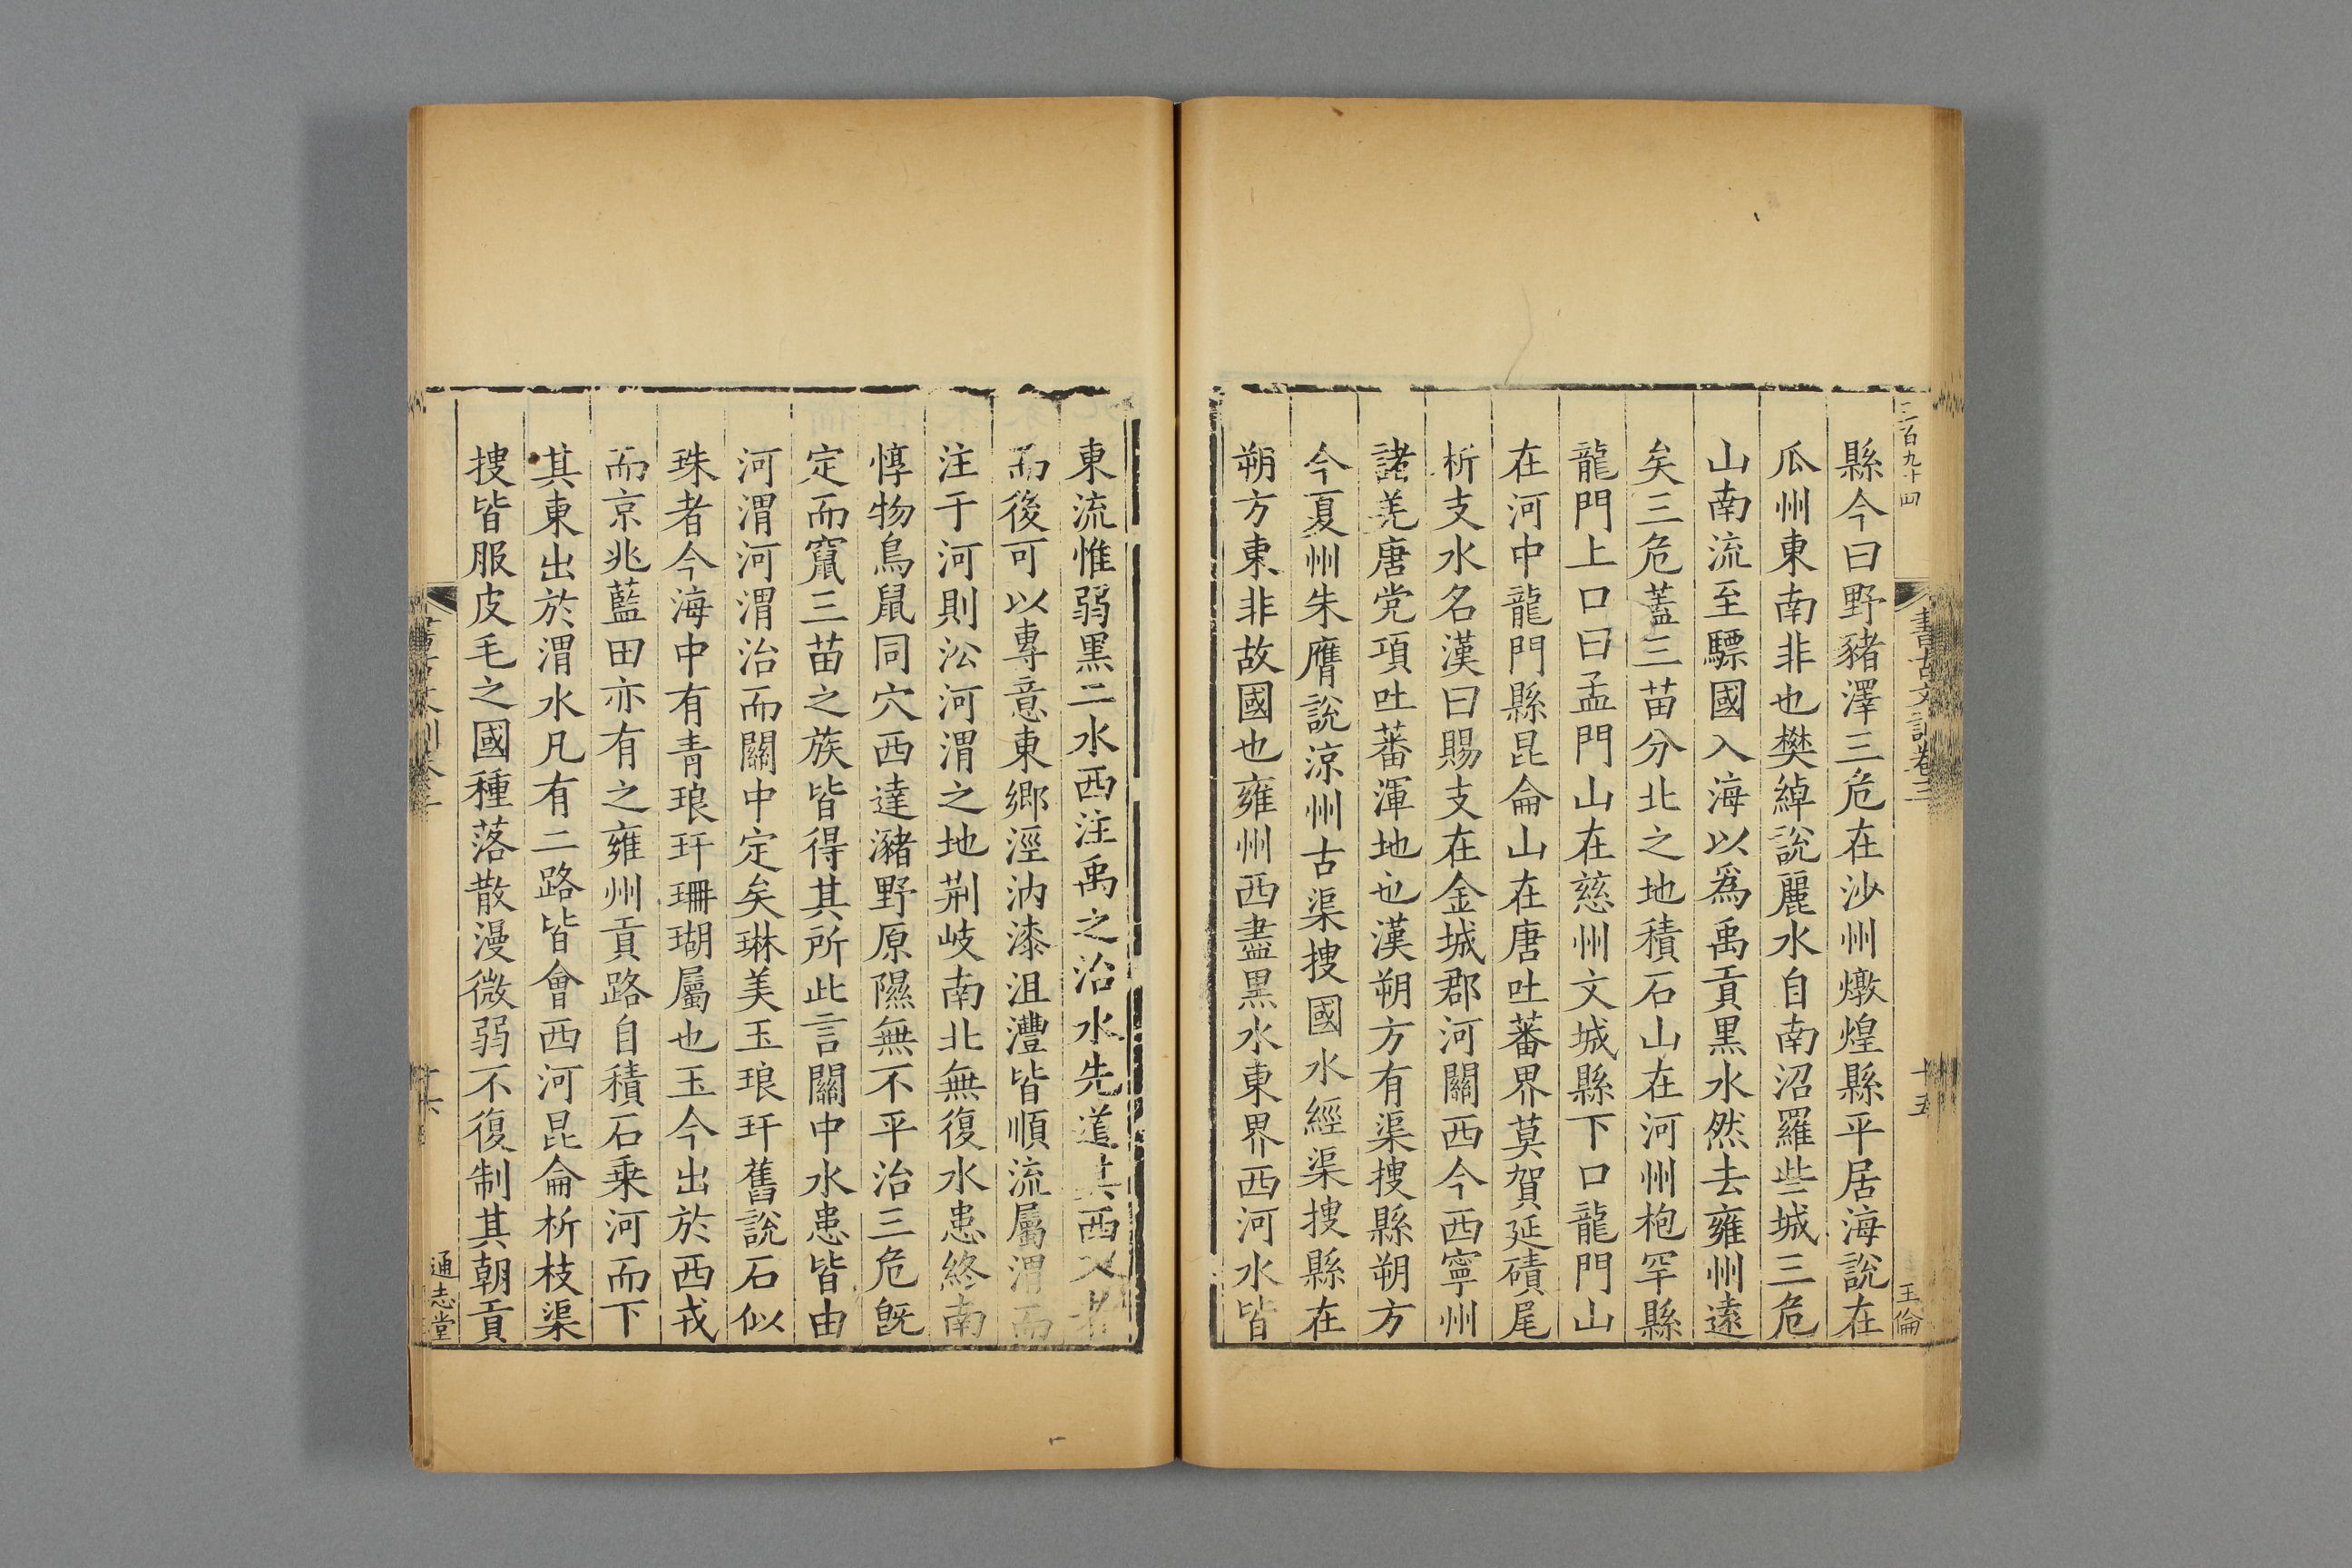 二百九十四
書古文訓卷三
十五
王倫
縣今曰野豬澤三危在沙州燉煌縣平居海說在
瓜州東南非也樊綽說麗水自南沼羅些城三危
山南流至驃國入海以爲禹貢黑水然去雍州遠
矣三危蓋三苗分北之地積石山在河州枹罕縣
龍門上口曰孟門山在慈州文城縣下口龍門山
在河中龍門縣昆侖山在唐吐蕃界莫賀延磧尾
析支水名漢曰賜支在金城郡河關西今西寧州
諸羌唐党項吐蕃渾地也漢朔方有渠搜縣朔方
今夏州朱膺說涼州古渠搜國水經渠搜縣在
朔方東非故國也雍州西盡黑水東界西河水皆
東流惟弱黑二水西注禹之治水先道其西又者
而後可以專意東鄉涇汭漆沮灃皆順流屬渭而
注于河則㳂河渭之地荆岐南北無復水患終南
惇物鳥鼠同穴西達瀦野原隰無不平治三危旣
定而竄三苗之族皆得其所此言關中水患皆由
河渭河渭治而關中定矣琳美玉琅玕舊說石似
珠者今海中有青琅玕珊瑚屬也玉今出於西戎
而京兆藍田亦有之雍州貢路自積石乗河而下
其東出於渭水凡有二路皆會西河昆侖析枝渠
搜皆服皮毛之國種落散漫微弱不復制其朝貢
十六
通志堂